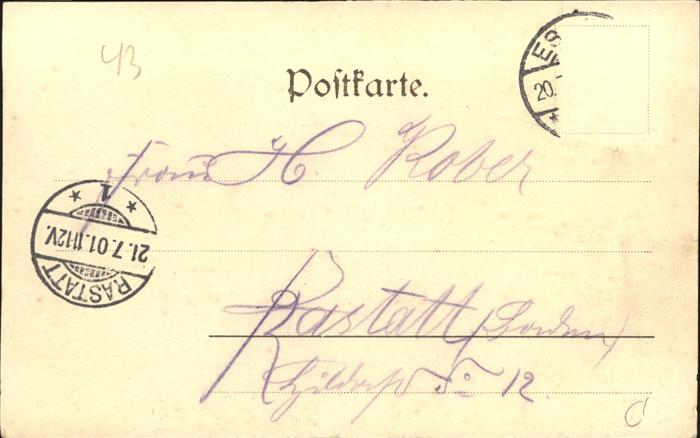 43
Postkarte.
ES
20.
Frau H. Kober
1
21.7.01.11-12V.
RASTATT
Rastatt (Baden)
No 12.
C